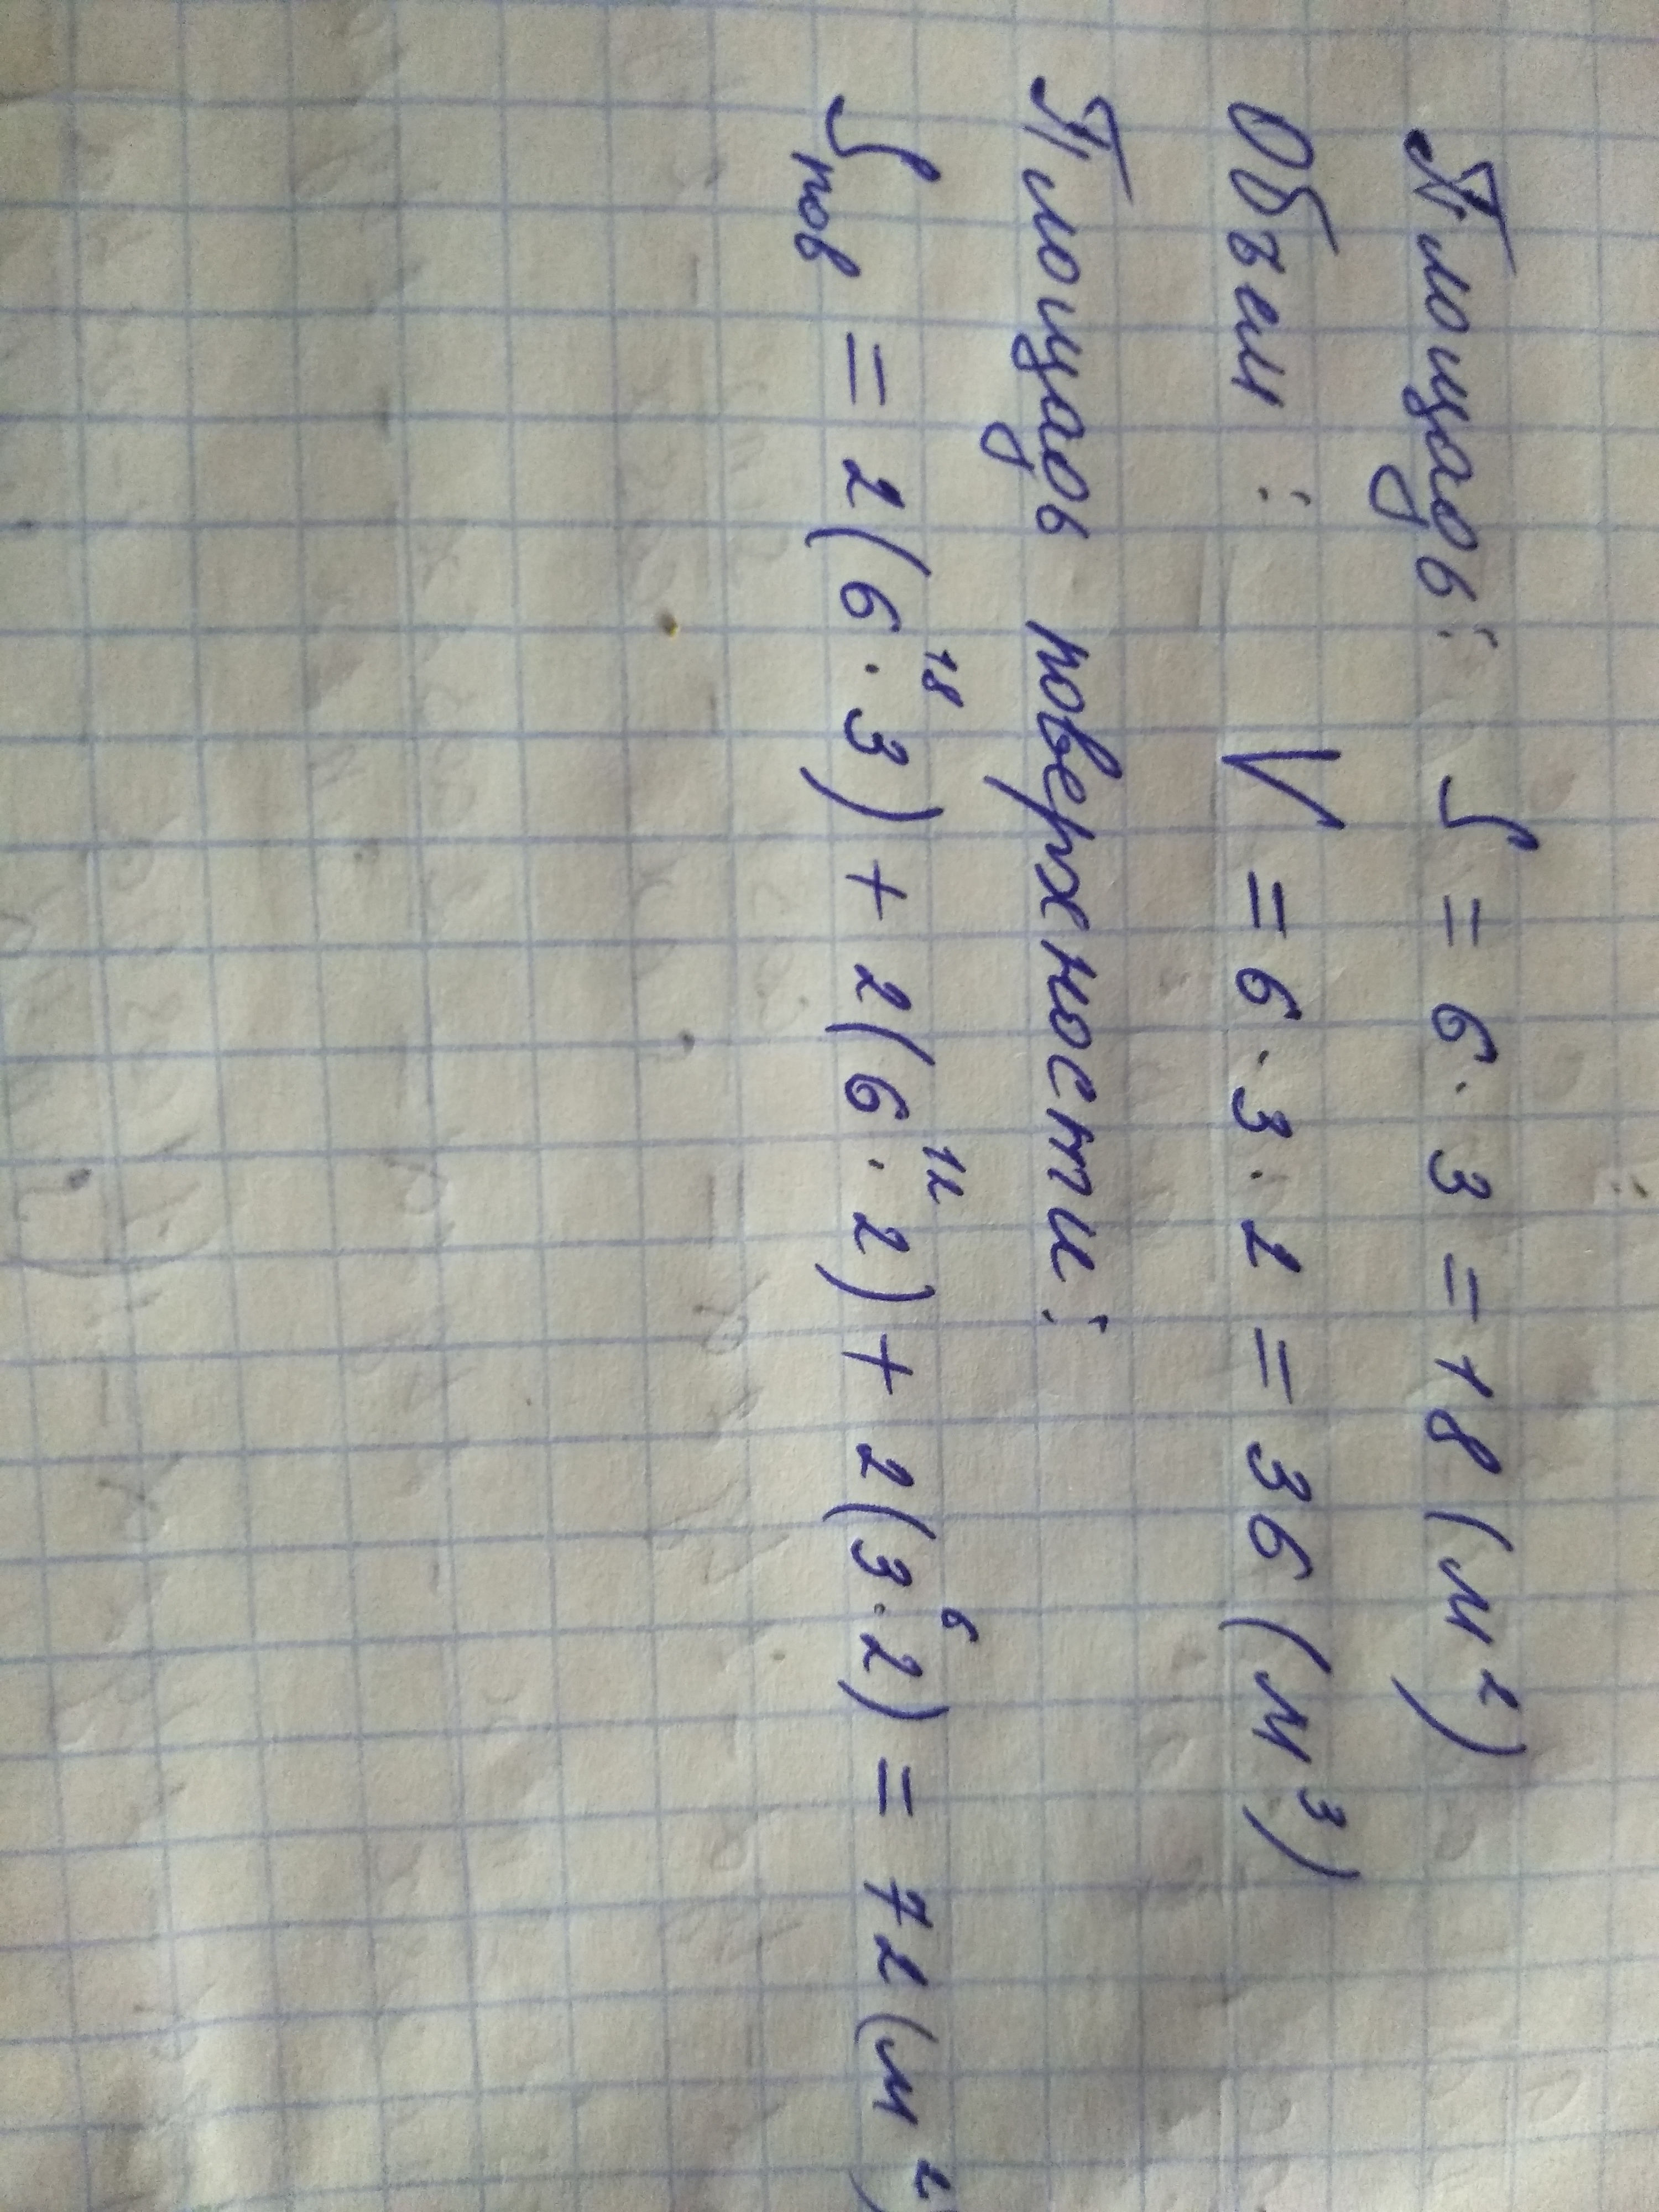 Площадь: S = 6 · 3 = 18 (м²)
Объем: V = 6 · 3 · 2 = 36 (м³)
Площадь поверхности:
Sпов = 2(6 · 3)¹⁸ + 2(6 · 2)¹² + 2(3 · 2)⁶ = 72 (м²)